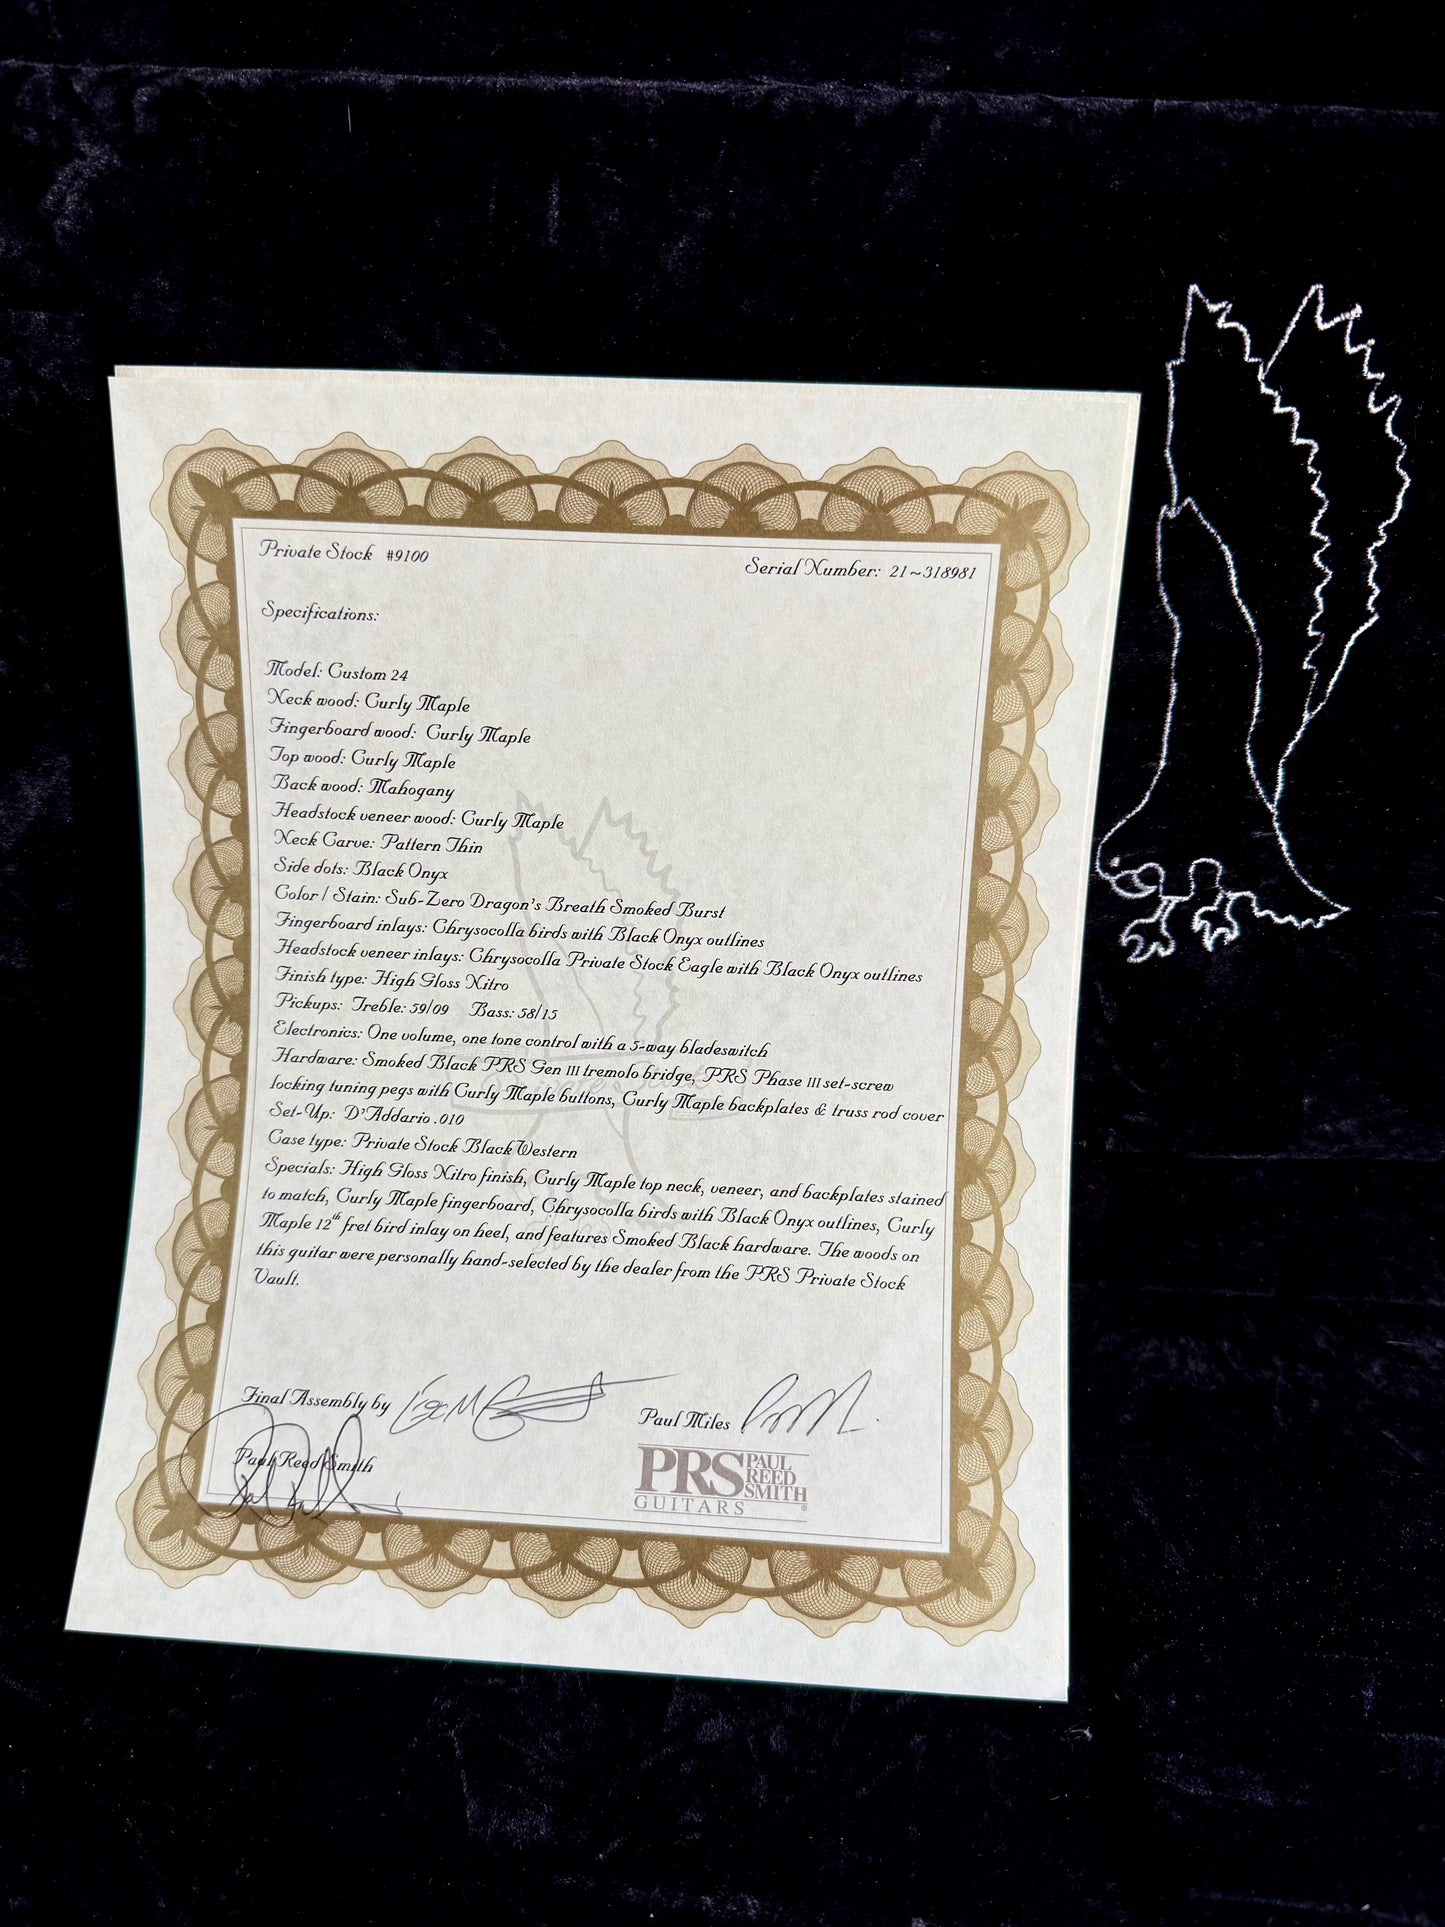 Private Stock #9100
Serial Number: 21~318981
Specifications:
Model: Custom 24
Neck wood: Curly Maple
Fingerboard wood: Curly Maple
Top wood: Curly Maple
Back wood: Mahogany
Headstock veneer wood: Curly Maple
Neck Carve: Pattern Thin
Side dots: Black Onyx
Color / Stain: Sub-Zero Dragon's Breath Smoked Burst
Fingerboard inlays: Chrysocolla birds with Black Onyx outlines
Headstock veneer inlays: Chrysocolla Private Stock Eagle with Black Onyx outlines
Finish type: High Gloss Nitro
Pickups: Treble: 59/09 Bass: 58/15
Electronics: One volume, one tone control with a 5-way bladeswitch
Hardware: Smoked Black PRS Gen III tremolo bridge, PRS Phase III set-screw
locking tuning pegs with Curly Maple buttons, Curly Maple backplates & truss rod cover
Set-Up: D'Addario .010
Case type: Private Stock Black Western
Specials: High Gloss Nitro finish, Curly Maple top neck, veneer, and backplates stained
to match, Curly Maple fingerboard, Chrysocolla birds with Black Onyx outlines, Curly
Maple 12th fret bird inlay on heel, and features Smoked Black hardware. The woods on
this guitar were personally hand-selected by the dealer from the PRS Private Stock
Vault.
Final Assembly by
Paul Miles
Paul Reed Smith
PRS PAUL REED SMITH
GUITARS